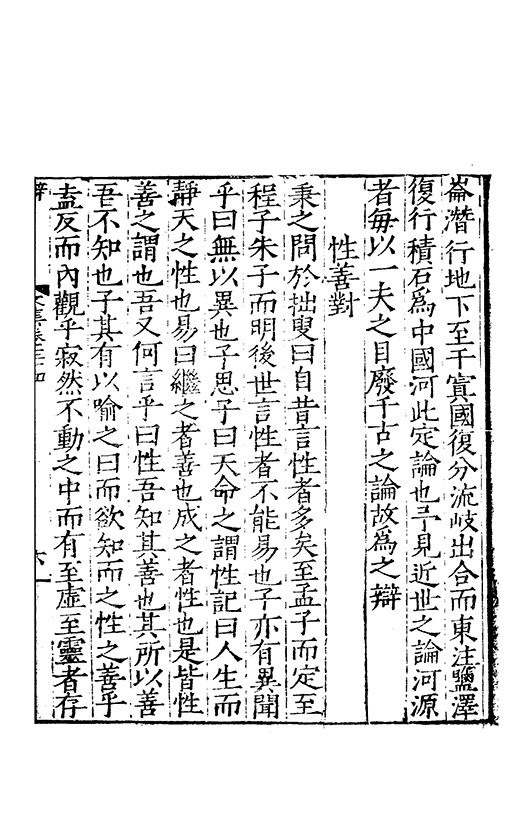 崙潛行地下至于窴國復分流岐出合而東注鹽澤
復行積石爲中國河此定論也予見近世之論河源
者每以一夫之目廢千古之論故爲之辯
性善對
秉之問於拙叟曰自昔言性者多矣至孟子而定至
程子朱子而明後世言性者不能易也子亦有異聞
乎曰無以異也子思子曰天命之謂性記曰人生而
靜天之性也易曰繼之者善也成之者性也是皆性
善之謂也吾又何言乎曰性吾知其善也其所以善
吾不知也子其有以喻之曰而欲知而之性之善乎
盍反而內觀乎寂然不動之中而有至虛至靈者存